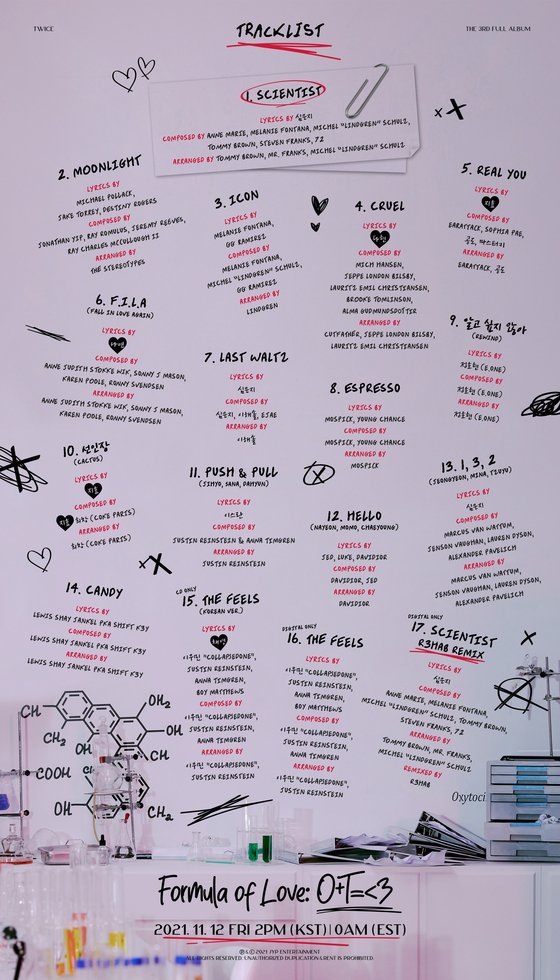 TWICE
TRACKLIST
THE 3RD FULL ALBUM
1. SCIENTIST
LYRICS BY 심은지
COMPOSED BY ANNE MARIE, MELANIE FONTANA, MICHEL "LINDGREN" SCHULZ,
TOMMY BROWN, STEVEN FRANKS, 72
ARRANGED BY TOMMY BROWN, MR. FRANKS, MICHEL "LINDGREN" SCHULZ
2. MOONLIGHT
LYRICS BY
MICHAEL POLLACK,
JAKE TORREY, DESTINY ROGERS
COMPOSED BY
JONATHAN YIP, RAY ROMULUS, JEREMY REEVES,
RAY CHARLES MCCULLOUGH II
ARRANGED BY
THE STEREOTYPES
3. ICON
LYRICS BY
MELANIE FONTANA,
GG RAMIREZ
COMPOSED BY
MELANIE FONTANA,
MICHEL "LINDGREN" SCHULZ,
GG RAMIREZ
ARRANGED BY
LINDGREN
4. CRUEL
LYRICS BY
다현
COMPOSED BY
MICH HANSEN,
JEPPE LONDON BILSBY,
LAURITZ EMIL CHRISTIANSEN,
BROOKE TOMLINSON,
ALMA GUDMUNDSDOTTER
ARRANGED BY
CUTFATHER, JEPPE LONDON BILSBY,
LAURITZ EMIL CHRISTIANSEN
5. REAL YOU
LYRICS BY
지효
COMPOSED BY
EARATTACK, SOPHIA PAE,
공도, 따스터치
ARRANGED BY
EARATTACK, 공도
6. F.I.L.A
(FALL IN LOVE AGAIN)
LYRICS BY
다현
COMPOSED BY
ANNE JUDITH STOKKE WIK, SONNY J MASON,
KAREN POOLE, RONNY SVENDSEN
ARRANGED BY
ANNE JUDITH STOKKE WIK, SONNY J MASON,
KAREN POOLE, RONNY SVENDSEN
7. LAST WALTZ
LYRICS BY
심은지
COMPOSED BY
심은지, 이해솔, EJAE
ARRANGED BY
이해솔
8. ESPRESSO
LYRICS BY
MOSPICK, YOUNG CHANCE
COMPOSED BY
MOSPICK, YOUNG CHANCE
ARRANGED BY
MOSPICK
9. 알고 싶지 않아
(REWIND)
LYRICS BY
지호현 (E.ONE)
COMPOSED BY
지호현 (E.ONE)
ARRANGED BY
지호현 (E.ONE)
10. 선인장
(CACTUS)
LYRICS BY
지효
COMPOSED BY
지효 최람 (COKE PARIS)
ARRANGED BY
최람 (COKE PARIS)
11. PUSH & PULL
(JIHYO, SANA, DAHYUN)
LYRICS BY
이스란
COMPOSED BY
JUSTIN REINSTEIN & ANNA TIMGREN
ARRANGED BY
JUSTIN REINSTEIN
12. HELLO
(NAYEON, MOMO, CHAEYOUNG)
LYRICS BY
JED, LUKE, DAVIDIOR
COMPOSED BY
DAVIDIOR, JED
ARRANGED BY
DAVIDIOR
13. 1, 3, 2
(JEONGYEON, MINA, TZUYU)
LYRICS BY
심은지
COMPOSED BY
MARCUS VAN WATTUM,
JENSON VAUGHAN, LAUREN DYSON,
ALEXANDER PAVELICH
ARRANGED BY
MARCUS VAN WATTUM,
JENSON VAUGHAN, LAUREN DYSON,
ALEXANDER PAVELICH
14. CANDY
LYRICS BY
LEWIS SHAY JANKEL PKA SHIFT K3Y
COMPOSED BY
LEWIS SHAY JANKEL PKA SHIFT K3Y
ARRANGED BY
LEWIS SHAY JANKEL PKA SHIFT K3Y
CD ONLY
15. THE FEELS
(KOREAN VER.)
LYRICS BY
이우민 "COLLAPSEDONE",
JUSTIN REINSTEIN,
ANNA TIMGREN,
BOY MATTHEWS
COMPOSED BY
이우민 "COLLAPSEDONE",
JUSTIN REINSTEIN,
ANNA TIMGREN
ARRANGED BY
이우민 "COLLAPSEDONE",
JUSTIN REINSTEIN
DIGITAL ONLY
16. THE FEELS
LYRICS BY
이우민 "COLLAPSEDONE",
JUSTIN REINSTEIN,
ANNA TIMGREN,
BOY MATTHEWS
COMPOSED BY
이우민 "COLLAPSEDONE",
JUSTIN REINSTEIN,
ANNA TIMGREN
ARRANGED BY
이우민 "COLLAPSEDONE",
JUSTIN REINSTEIN
DIGITAL ONLY
17. SCIENTIST
R3HAB REMIX
LYRICS BY
심은지
COMPOSED BY
ANNE MARIE, MELANIE FONTANA,
MICHEL "LINDGREN" SCHULZ, TOMMY BROWN,
STEVEN FRANKS, 72
ARRANGED BY
TOMMY BROWN, MR. FRANKS,
MICHEL "LINDGREN" SCHULZ
REMIXED BY
R3HAB
CH
OH₂
CH₂
OH
OH
CH
COOH
OH
CH₂
Oxytoci
Formula of Love: O+T=<3
2021. 11. 12 FRI 2PM (KST) | 0AM (EST)
Ⓟ & © 2021 JYP ENTERTAINMENT
ALL RIGHTS RESERVED. UNAUTHORIZED DUPLICATION & RENT IS PROHIBITED.